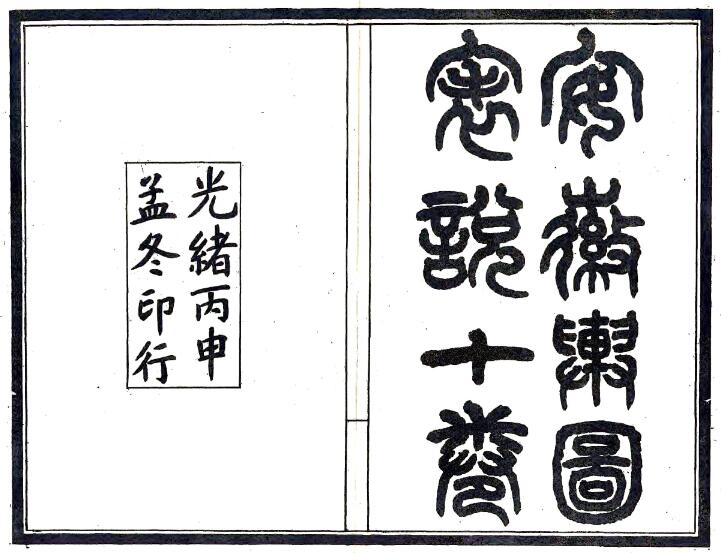 安徽輿圖
表說十卷
光緒丙申
孟冬印行